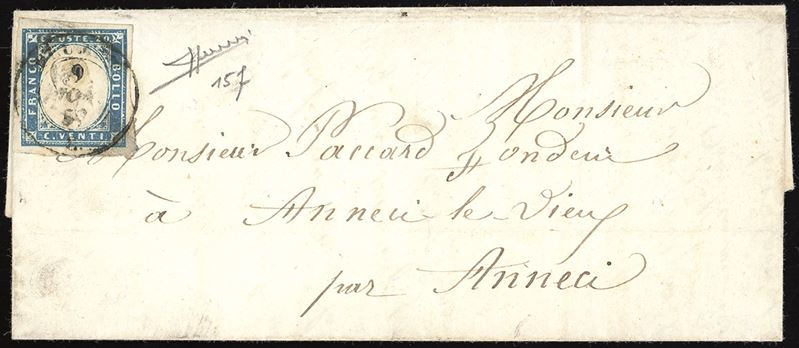 C. POSTE 20
FRANCO
BOLLO
C. VENTI
9
NOV
59
157
Monsieur
Monsieur Paccard Fondeur
à Anneci le Vieux
par Anneci